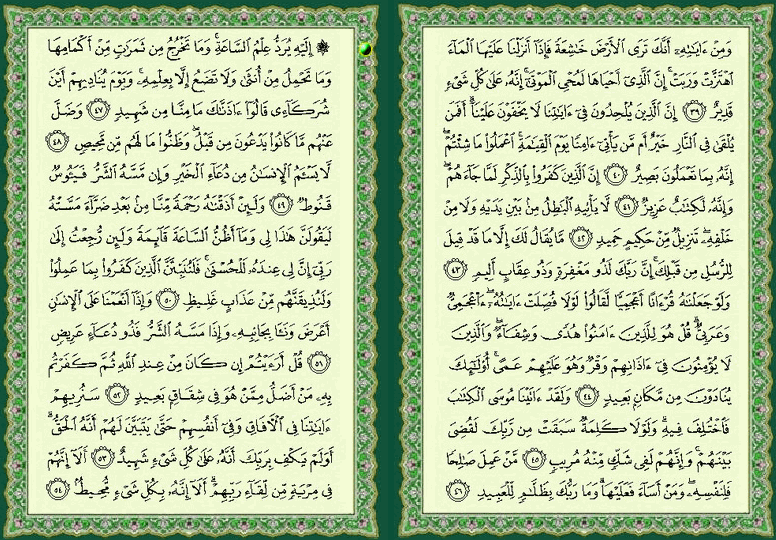 وَمِنْ ءَايَٰتِهِۦٓ أَنَّكَ تَرَى ٱلْأَرْضَ خَٰشِعَةً فَإِذَآ أَنزَلْنَا عَلَيْهَا ٱلْمَآءَ
ٱهْتَزَّتْ وَرَبَتْ ۚ إِنَّ ٱلَّذِىٓ أَحْيَاهَا لَمُحْىِ ٱلْمَوْتَىٰٓ ۚ إِنَّهُۥ عَلَىٰ كُلِّ شَىْءٍ
قَدِيرٌ ٣٩ إِنَّ ٱلَّذِينَ يُلْحِدُونَ فِىٓ ءَايَٰتِنَا لَا يَخْفَوْنَ عَلَيْنَآ ۗ أَفَمَن
يُلْقَىٰ فِى ٱلنَّارِ خَيْرٌ أَم مَّن يَأْتِىٓ ءَامِنًا يَوْمَ ٱلْقِيَٰمَةِ ۚ ٱعْمَلُوا۟ مَا شِئْتُمْ ۖ
إِنَّهُۥ بِمَا تَعْمَلُونَ بَصِيرٌ ٤٠ إِنَّ ٱلَّذِينَ كَفَرُوا۟ بِٱلذِّكْرِ لَمَّا جَآءَهُمْ ۖ
وَإِنَّهُۥ لَكِتَٰبٌ عَزِيزٌ ٤١ لَّا يَأْتِيهِ ٱلْبَٰطِلُ مِنۢ بَيْنِ يَدَيْهِ وَلَا مِنْ
خَلْفِهِۦ ۖ تَنزِيلٌ مِّنْ حَكِيمٍ حَمِيدٍ ٤٢ مَّا يُقَالُ لَكَ إِلَّا مَا قَدْ قِيلَ
لِلرُّسُلِ مِن قَبْلِكَ ۚ إِنَّ رَبَّكَ لَذُو مَغْفِرَةٍ وَذُو عِقَابٍ أَلِيمٍ ٤٣
وَلَوْ جَعَلْنَٰهُ قُرْءَانًا أَعْجَمِيًّا لَّقَالُوا۟ لَوْلَا فُصِّلَتْ ءَايَٰتُهُۥٓ ۖ ءَا۬عْجَمِىٌّ
وَعَرَبِىٌّ ۗ قُلْ هُوَ لِلَّذِينَ ءَامَنُوا۟ هُدًى وَشِفَآءٌ ۖ وَٱلَّذِينَ
لَا يُؤْمِنُونَ فِىٓ ءَاذَانِهِمْ وَقْرٌ وَهُوَ عَلَيْهِمْ عَمًى ۚ أُو۟لَٰٓئِكَ
يُنَادَوْنَ مِن مَّكَانٍۭ بَعِيدٍ ٤٤ وَلَقَدْ ءَاتَيْنَا مُوسَى ٱلْكِتَٰبَ
فَٱخْتُلِفَ فِيهِ ۗ وَلَوْلَا كَلِمَةٌ سَبَقَتْ مِن رَّبِّكَ لَقُضِىَ
بَيْنَهُمْ ۚ وَإِنَّهُمْ لَفِى شَكٍّ مِّنْهُ مُرِيبٍ ٤٥ مَّنْ عَمِلَ صَٰلِحًا
فَلِنَفْسِهِۦ ۖ وَمَنْ أَسَآءَ فَعَلَيْهَا ۗ وَمَا رَبُّكَ بِظَلَّٰمٍ لِّلْعَبِيدِ ٤٦
۞ إِلَيْهِ يُرَدُّ عِلْمُ ٱلسَّاعَةِ ۚ وَمَا تَخْرُجُ مِن ثَمَرَٰتٍ مِّنْ أَكْمَامِهَا
وَمَا تَحْمِلُ مِنْ أُنثَىٰ وَلَا تَضَعُ إِلَّا بِعِلْمِهِۦ ۚ وَيَوْمَ يُنَادِيهِمْ أَيْنَ
شُرَكَآءِى قَالُوٓا۟ ءَاذَنَّٰكَ مَا مِنَّا مِن شَهِيدٍ ٤٧ وَضَلَّ
عَنْهُم مَّا كَانُوا۟ يَدْعُونَ مِن قَبْلُ ۖ وَظَنُّوا۟ مَا لَهُم مِّن مَّحِيصٍ ٤٨
لَّا يَسْـَٔمُ ٱلْإِنسَٰنُ مِن دُعَآءِ ٱلْخَيْرِ وَإِن مَّسَّهُ ٱلشَّرُّ فَيَـُٔوسٌ
قَنُوطٌ ٤٩ وَلَئِنْ أَذَقْنَٰهُ رَحْمَةً مِّنَّا مِنۢ بَعْدِ ضَرَّآءَ مَسَّتْهُ
لَيَقُولَنَّ هَٰذَا لِى وَمَآ أَظُنُّ ٱلسَّاعَةَ قَآئِمَةً وَلَئِن رُّجِعْتُ إِلَىٰ
رَبِّىٓ إِنَّ لِى عِندَهُۥ لَلْحُسْنَىٰ ۚ فَلَنُنَبِّئَنَّ ٱلَّذِينَ كَفَرُوا۟ بِمَا عَمِلُوا۟
وَلَنُذِيقَنَّهُم مِّنْ عَذَابٍ غَلِيظٍ ٥٠ وَإِذَآ أَنْعَمْنَا عَلَى ٱلْإِنسَٰنِ
أَعْرَضَ وَنَـَٔا بِجَانِبِهِۦ وَإِذَا مَسَّهُ ٱلشَّرُّ فَذُو دُعَآءٍ عَرِيضٍ
٥١ قُلْ أَرَءَيْتُمْ إِن كَانَ مِنْ عِندِ ٱللَّهِ ثُمَّ كَفَرْتُم
بِهِۦ مَنْ أَضَلُّ مِمَّنْ هُوَ فِى شِقَاقٍۭ بَعِيدٍ ٥٢ سَنُرِيهِمْ
ءَايَٰتِنَا فِى ٱلْءَافَاقِ وَفِىٓ أَنفُسِهِمْ حَتَّىٰ يَتَبَيَّنَ لَهُمْ أَنَّهُ ٱلْحَقُّ ۗ
أَوَلَمْ يَكْفِ بِرَبِّكَ أَنَّهُۥ عَلَىٰ كُلِّ شَىْءٍ شَهِيدٌ ٥٣ أَلَآ إِنَّهُمْ
فِى مِرْيَةٍ مِّن لِّقَآءِ رَبِّهِمْ ۗ أَلَآ إِنَّهُۥ بِكُلِّ شَىْءٍ مُّحِيطٌۢ ٥٤